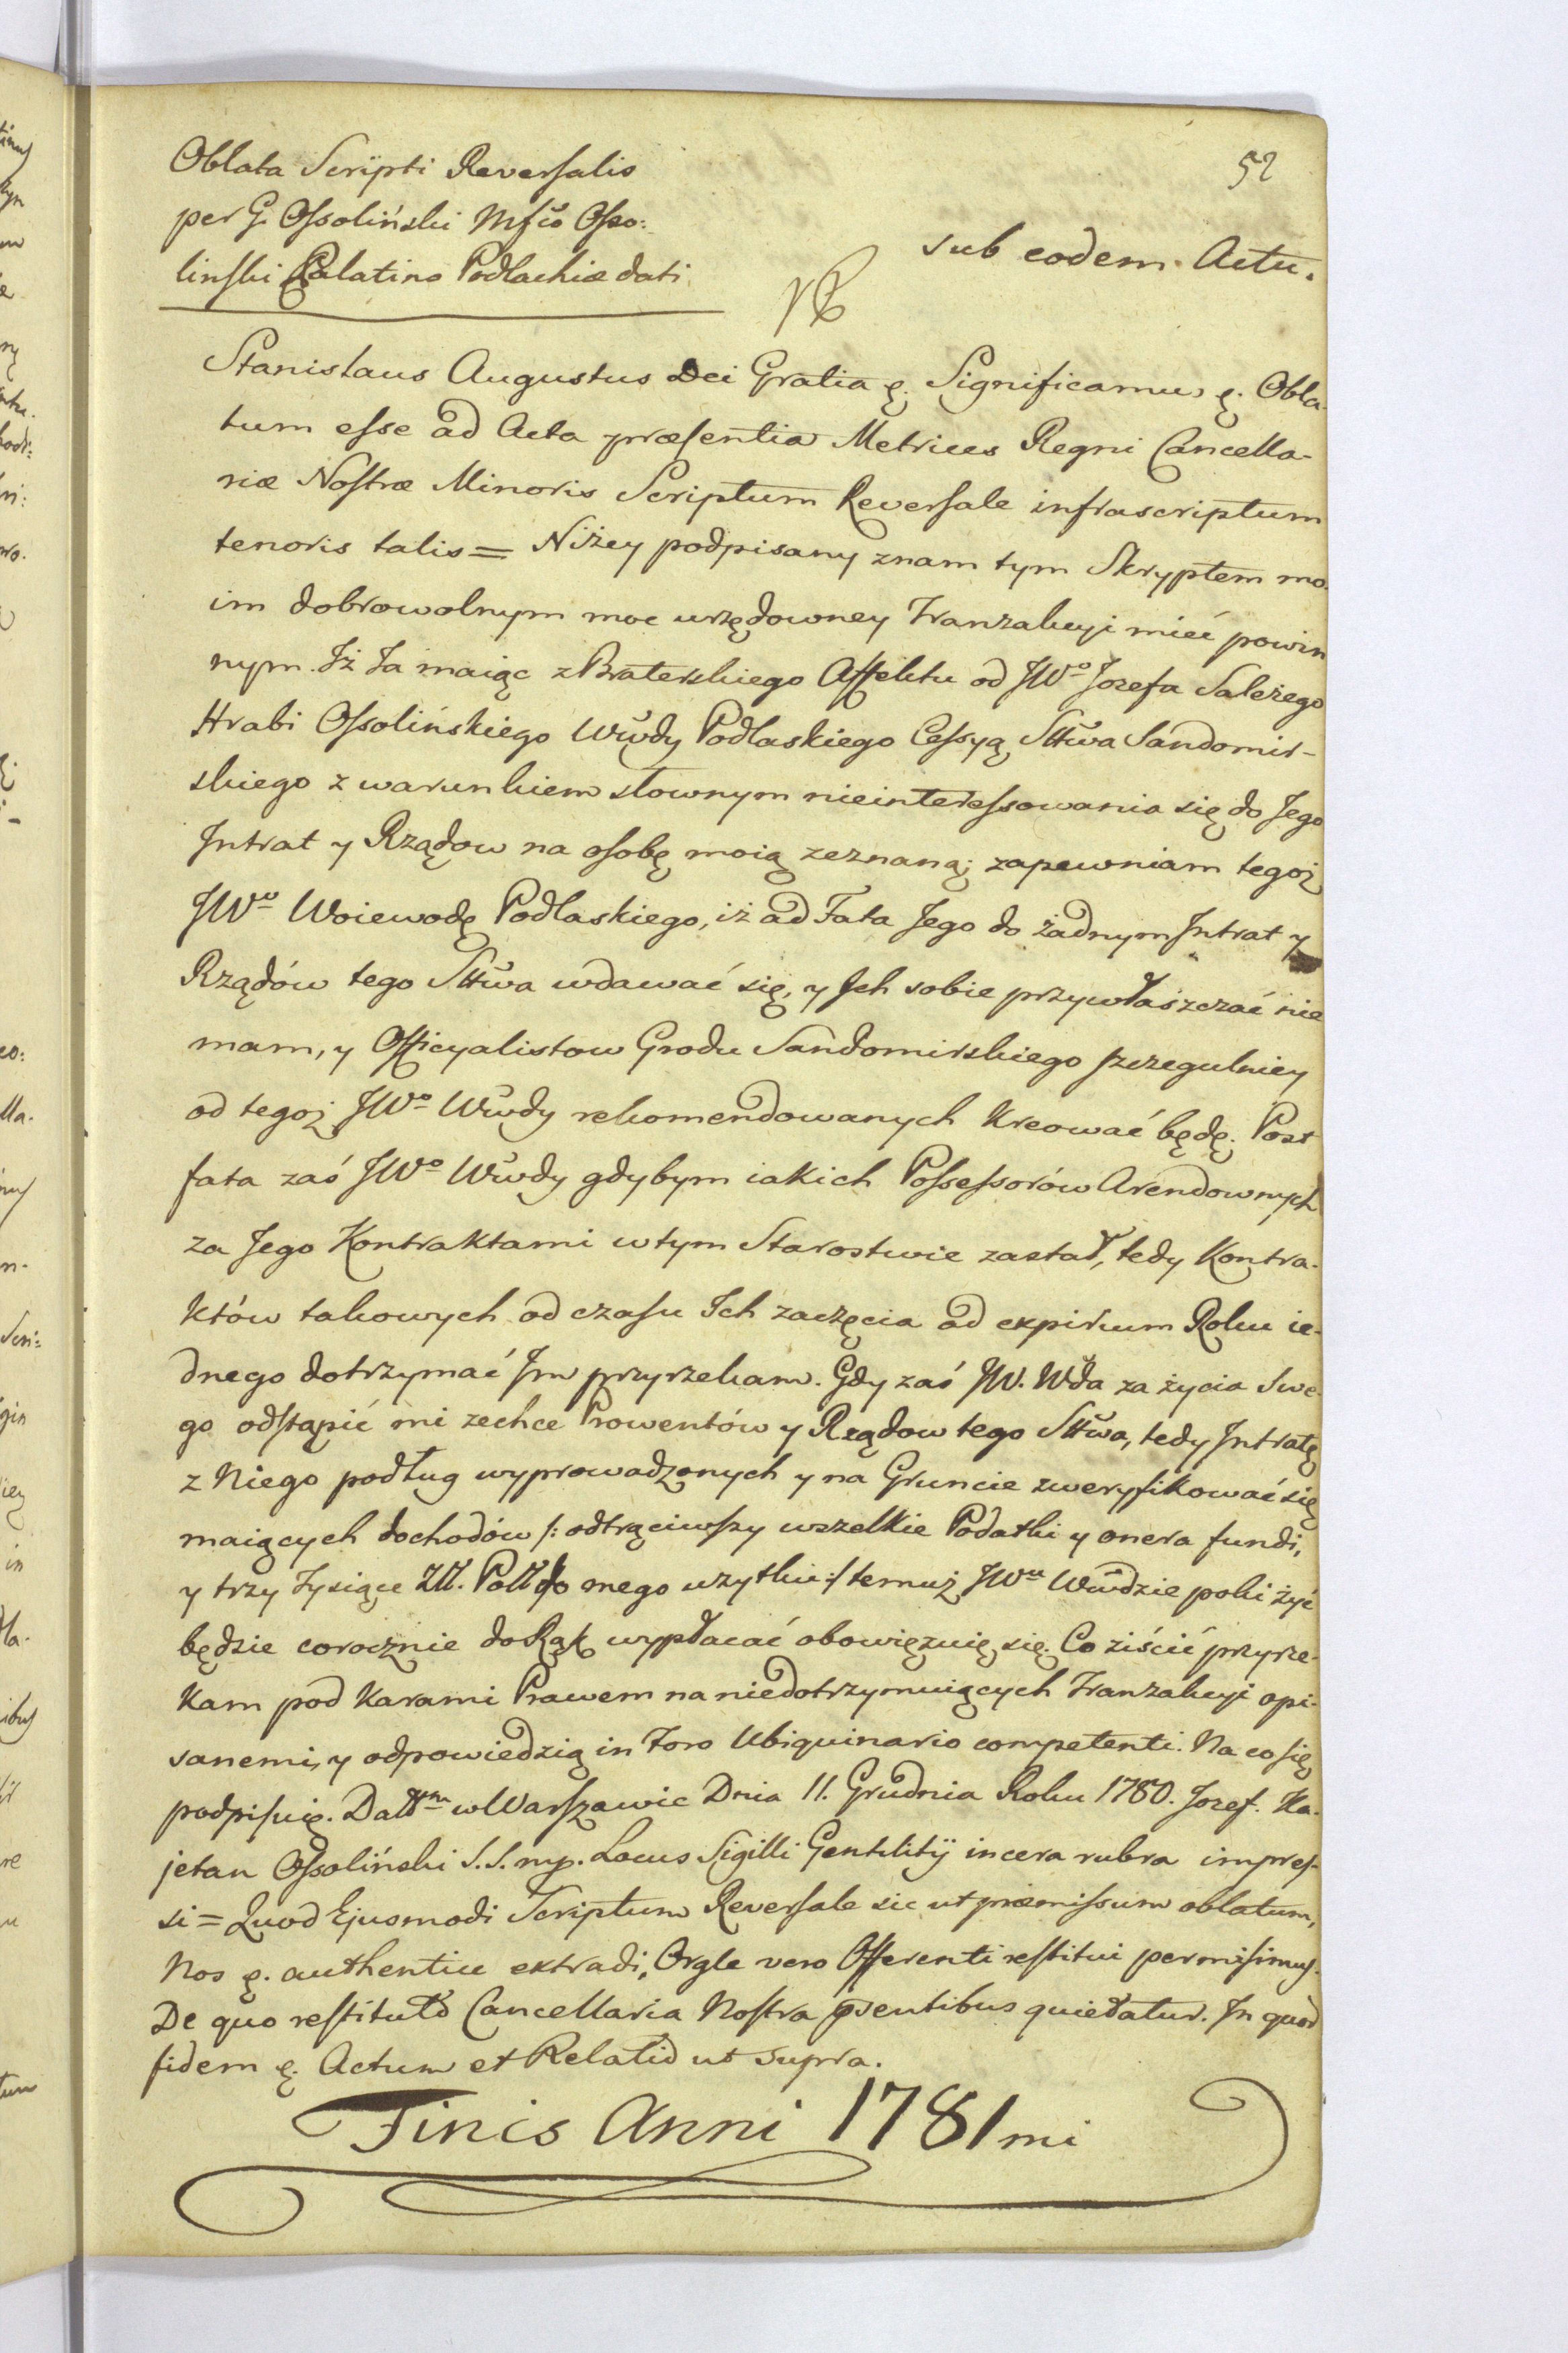 52
Oblata Scripti Reversalis
per G. Ossoliński Mfco Osso:
linski Palatino Podlachiæ dati
sub eodem Actu.
Stanislaus Augustus Dei Gratia &. Significamus &. Obla-
tum esse ad Acta præsentia Metrices Regni Cancella-
riæ Nostræ Minoris Scriptum Reversale infrascriptum
tenoris talis = Niżey podpisany znam tym Skryptem mo-
im dobrowolnym moc urzędowney Tranzakcyi mieć powin
nym. Iż Ja maiąc z Braterskiego Affektu od JWo Jozefa Salezego
Hrabi Ossolińskiego Wwdy Podlaskiego Cessyą Sttwa Sandomir-
skiego z warunkiem słownym nieinteressowania się do Jego
Intrat y Rządow na osobę moią zeznaną; zapewniam tegoż
JWo Woiewodę Podlaskiego, iż ad Fata Jego do żadnym Intrat y
Rządów tego Sttwa wdawać się, y Ich sobie przywłaszczać nie
mam, y Officyalistow Grodu Sandomirskiego szczegulniey
od tegoż JWo Wwdy rekomendowanych kreować będę. Post
fata zaś JWo Wwdy gdybym iakich Possessorów Arendownych
za Jego Kontraktami w tym Starostwie zastał, tedy Kontra-
któw takowych od czasu Ich zaczęcia ad expirium Roku ie-
dnego dotrzymać Im przyrzekam. Gdy zaś JW. Wda za życia Swe-
go odstąpić mi zechce Prowentów y Rządow tego Sttwa, tedy Intratę
z Niego podług wyprowadzonych y na Gruncie zweryfikować się
maiących dochodów /: odtrąciwszy wszelkie Podatki y onera fundi,
y trzy tysiące Złł. Poll do mego uzytku :/ temuż JWu Wwdzie poki żyć
będzie corocznie do Rąk wypłacać obowięzuię się. Co ziścić przyrze-
kam pod karami Prawem na niedotrzymuiących Tranzakcyi opi-
sanemi, y odpowiedzią in Foro Ubiquinario competenti. Na co się
podpisuię. Datt w Warszawie Dnia 11. Grudnia Roku 1780. Jozef Ka-
jetan Ossoliński S.S. mp. Locus Sigilli Gentilitij in cera rubra impres-
si = Quod Ejusmodi Scriptum Reversale sic ut præmissum oblatum,
Nos &. authentice extradi, Orgle vero Offerenti restitui permisimus.
De quo restituto Cancellaria Nostra psentibus quietatur. In quod
fidem &. Actum et Relatio ut supra.
Finis Anni 1781mi